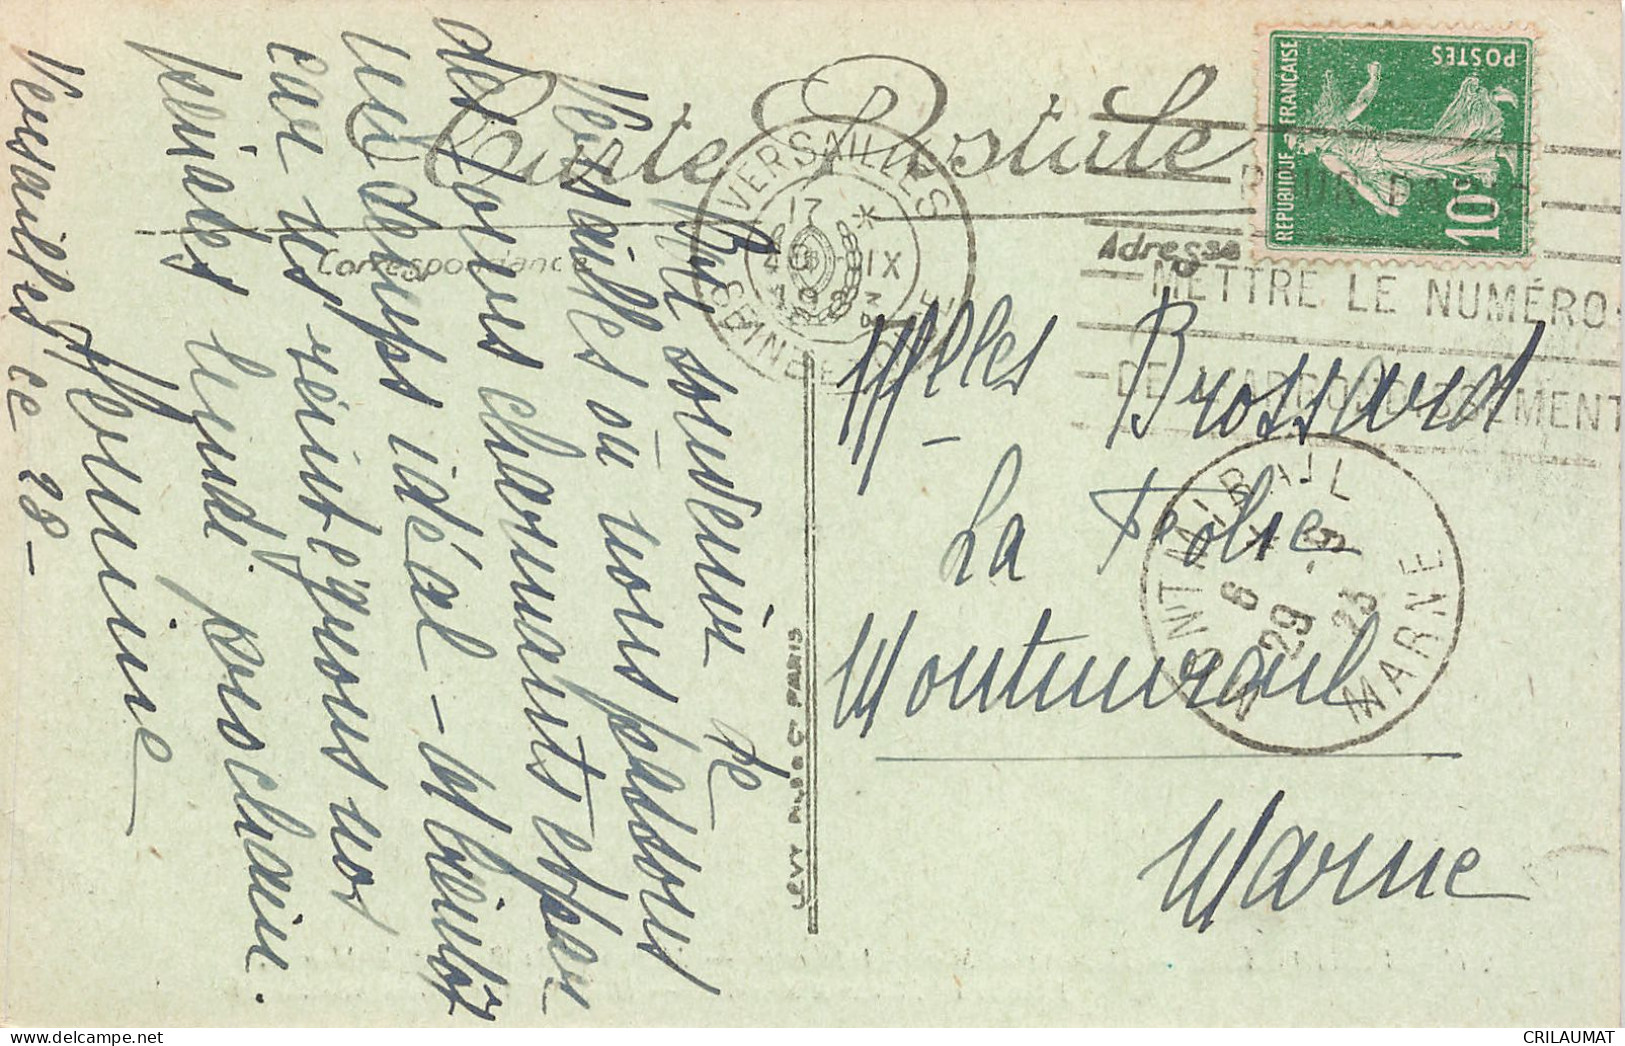 Carte Postale
Correspondance
Adresse
REPUBLIQUE FRANÇAISE
POSTES
10c
VERSAILLES
17
28 IX
1923
SEINE-ET-OISE
POUR PARIS
METTRE LE NUMÉRO
DE L'ARRONDISSEMENT
MONTMIRAIL
6
29 - 9
23
MARNE
Mlles Brossard
La Folie
Montmirail
Marne
Bon souvenir de
Versailles où nous passons
des jours charmants et par
un temps idéal - A bientôt
car
lundi prochain.
Versailles ce 28 -
LEVY FILS & Cie PARIS
CRILAUMAT